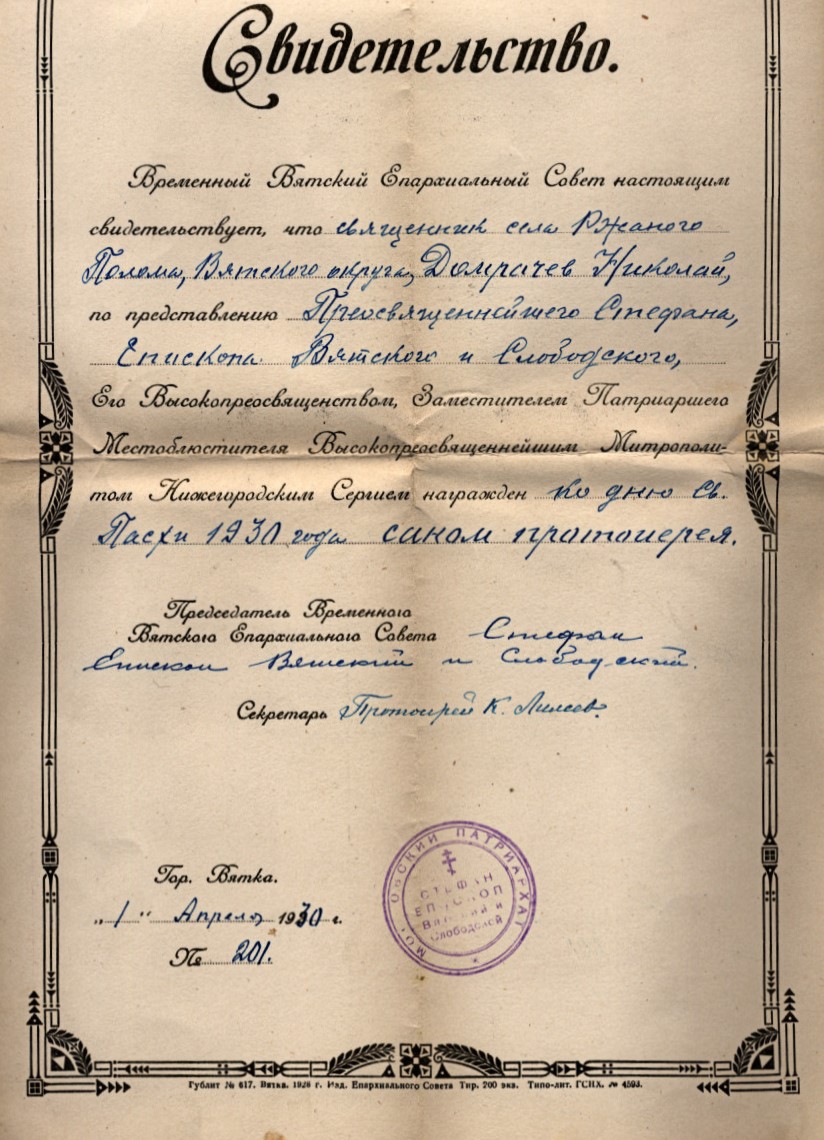 Свидетельство.
Временный Вятский Епархиальный Совет настоящим
свидетельствует, что священник села Ржаного
Полома, Вятского округа, Домрачев Николай,
по представлению Преосвященнейшего Стефана,
Епископа Вятского и Слободского,
Его Высокопреосвященством, Заместителем Патриаршего
Местоблюстителя Высокопреосвященнейшим Митрополи-
том Нижегородским Сергием награжден ко дню Св.
Пасхи 1930 года саном протоиерея.
Председатель Временного
Вятского Епархиального Совета Стефан
Епископ Вятский и Слободский.
Секретарь Протоиерей К.
Гор. Вятка.
„1" Апреля 1930 г.
№ 201.
МОСКОВСКИЙ ПАТРИАРХАТ
СТЕФАН
ЕПИСКОП
Вятский и
Слободской
Гублит № 617. Вятка. 1928 г. Изд. Епархиального Совета Тир. 200 экз. Типо-лит. ГСНХ. № 4593.